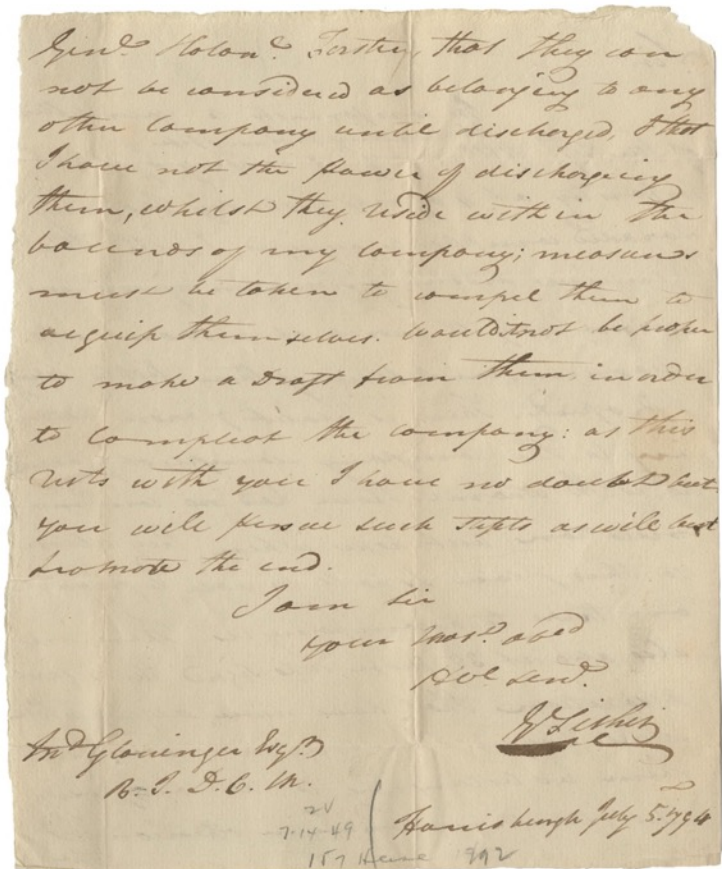 Genl. Forster, that they can
not be considered as belonging to any
other Company until discharged, & that
I have not the Power of discharging
them, whilst they reside within the
bounds of my Company; measures
must be taken to compel them to
equip themselves. would it not be proper
to make a Draft from them in order
to compleat the company: as this
rests with you I have no doubt but
you will pursue such stepts as will best
promote the end.
I am Sir
your Most. obed
Hbl. Servt.
Gloninger Esqr.
B. I. D. C. M.
Harrisburgh July 5. 1794
7-14-49